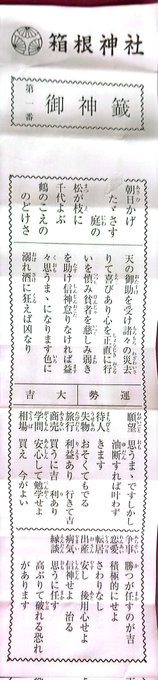 箱根神社
第一番
御神籤
朝日かげ
たゞさす
庭の
松が枝に
千代よぶ
鶴のこえの
のどけさ
天の御助を受け諸々の災去
りて喜びあり心を正直に行
いを慎み貧者を慈しみ弱き
を助け信神怠りなければ益
々思うまゝになります色に
溺れ酒に狂えば凶なり
運勢 大吉
願望 思うまゝですしかし
油断すれば叶わず
待人 きます
失物 おそくてもでる
旅行 利益あり 行きて吉
商売 買うに吉 利あり
学問 安心して勉学せよ
相場 買え 今がよい
争事 勝つが任すのが吉
積極的にせよ
転居 さわりなし
出産 安し 後用心せよ
病気 信神せよ 治る
縁談 思うに任す
高ぶりて破れる恐れ
があります